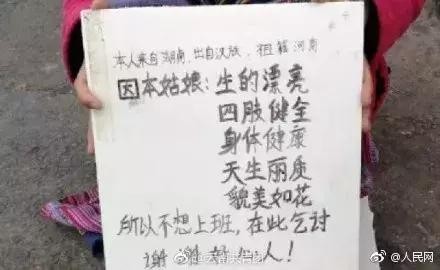 本人来自湖南,出自汉族,祖籍河南
因本姑娘:生的漂亮
四肢健全
身体健康
天生丽质
貌美如花
所以不想上班,在此乞讨
谢谢 人!
@人民网